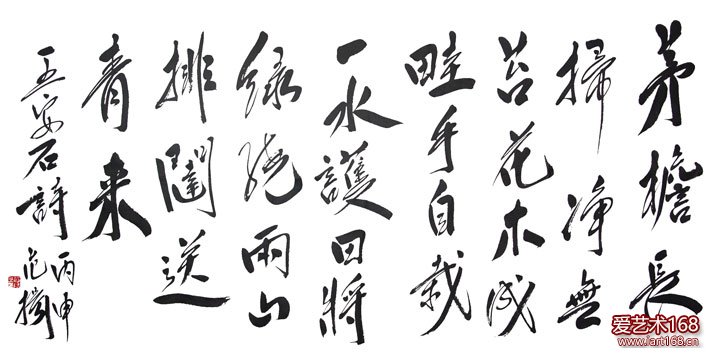 茅檐長
掃净無
苔花木成
畦手自栽
一水護田將
绿繞兩山
排闥送
青来
王安石詩
丙申
爱艺术168
www.iart168.cn